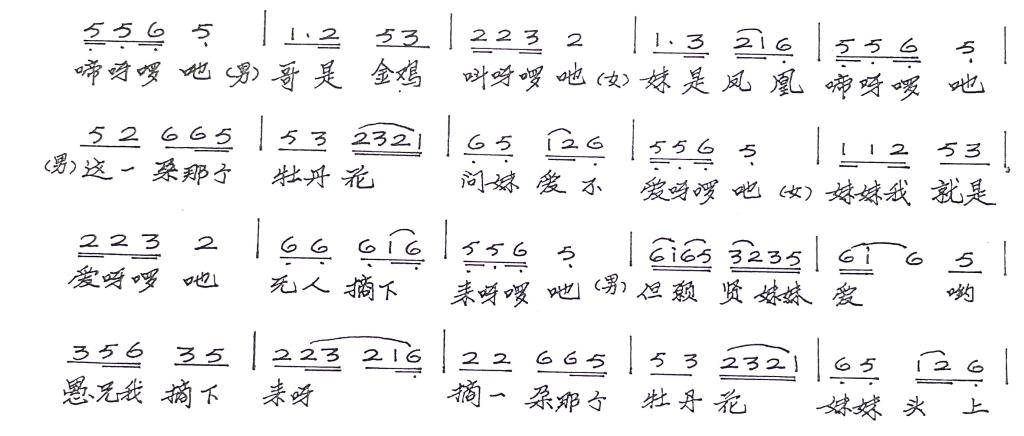 5 5 6 5 | 1·2 5 3 | 2 2 3 2 | 1·3 2 1 6 | 5 5 6 5 |
啼呀啰吔(男)哥是金鸡 叫呀啰吔(女)妹是凤凰 啼呀啰吔
5 2 6 6 5 | 5 3 2 3 2 1 | 6 5 1 2 6 | 5 5 6 5 | 1 1 2 5 3 |
(男)这一朵那个 牡丹花 问妹爱不 爱呀啰吔(女)妹妹我就是
2 2 3 2 | 6 6 6 i 6 | 5 5 6 5 | 6 i 6 5 3 2 3 5 | 6 i 6 5 |
爱呀啰吔 无人摘下 来呀啰吔(男)但愿贤妹妹 爱 哟
3 5 6 3 5 | 2 2 3 2 1 6 | 2 2 6 6 5 | 5 3 2 3 2 1 | 6 5 1 2 6 |
愚兄我摘下 来呀 摘一朵那个 牡丹花 妹妹头上